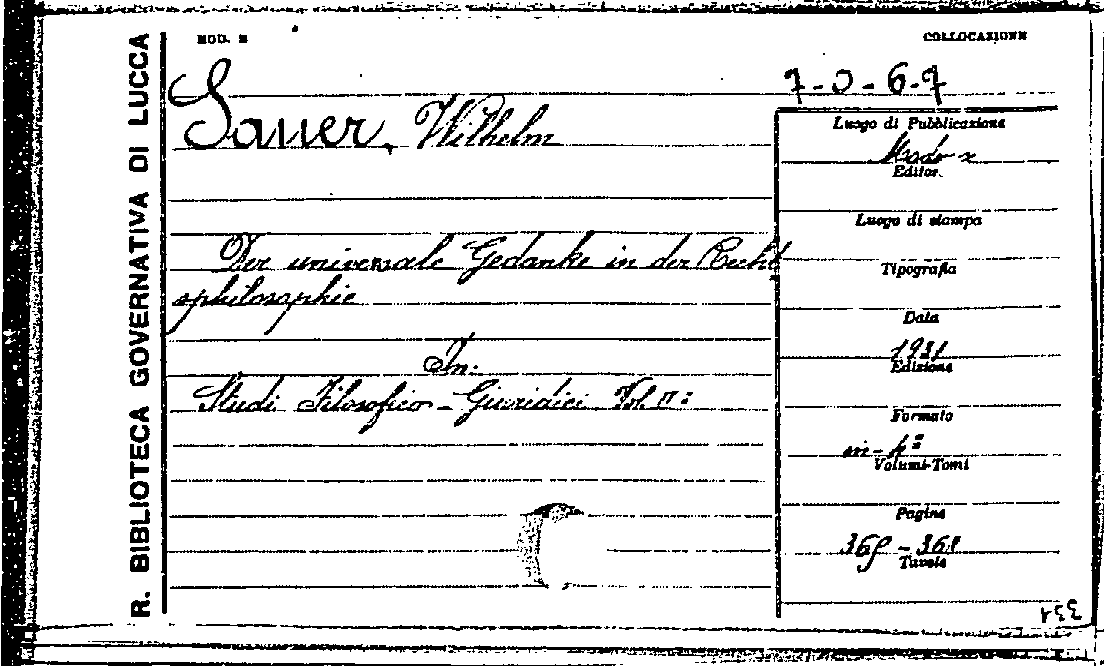 R. BIBLIOTECA GOVERNATIVA DI LUCCA
MOD. E
COLLOCAZIONE
7-0-6-7
Sauer, Wilhelm
Luogo di Pubblicazione
Editor.
Luogo di stampa
Der universale Gedanke in der Recht
sphilosophie
Tipografia
Data
1931
Edizione
In:
Studi Filosofico-Giuridici Vol. II:
Formato
in-4º
Volumi-Tomi
Pagine
Tavole